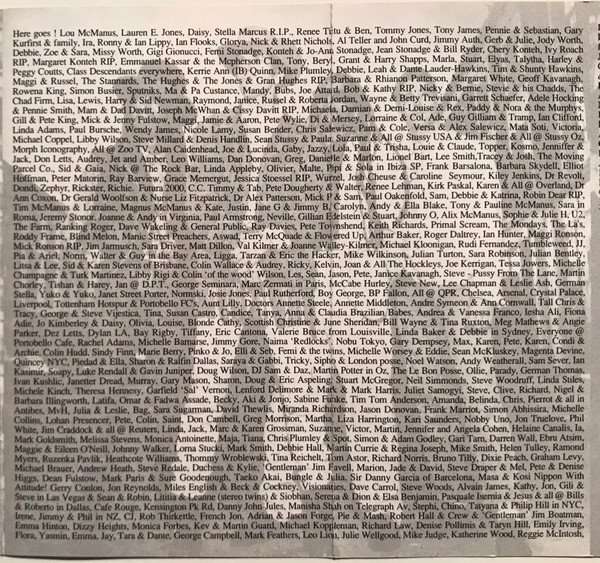 Here goes ! Lou McManus, Lauren E. Jones, Daisy, Stella Marcus R.I.P., Renee Tutu & Ben, Tommy Jones, Tony James, Pennie & Sebastian, Gary
Kurfirst & family, Ira, Ronny & Ian Lippy, Ian Flooks, Glorya, Nick & Rhett Nichols, Al Teller and John Curd, Jimmy Auth, Gerb & Julie, Jody Worth,
Debbie, Zoe & Sara, Missy Worth, Gigi Gionucci, Femi Stonadge, Konteh & Jo-Ann Stonadge, Jean Stonadge & Bill Ryder, Chery Konteh, Ivy Roach
RIP, Margaret Konteh RIP, Emmanuel Kassar & the Mcpherson Clan, Tony, Beryl, Grant & Harry Shapps, Marla, Stuart, Elyas, Talytha, Harley &
Peggy Coutts, Class Descendants everywhere, Kerrie Ann (IB) Quinn, Mike Plumley, Debbie, Leah & Dante Lauder-Hawkins, Tim & Shunty Hawkins,
Maggi & Russel, The Stannards, The Hughes & The Jones & Gran Hughes RIP, Barbara & Rhianon Patterson, Margaret White, Geoff Kavanagh,
Rowena King, Simon Busier, Sputniks, Ma & Pa Custance, Mandy, Bubs, Joe Attard, Bob & Kathy RIP, Nicky & Bernie, Stevie & his Chadds, The
Chad Firm, Lisa, Lewis, Harry & Sid Newman, Raymond, Janice, Russel & Roberta Jordan, Wayne & Betty Trevisani, Garrett Schaefer, Adele Hocking
& Pennie Smith, Mam & Dad Davitt, Joseph McWhan & Cissy Davitt RIP, Michaela, Damian & Demi-Louise & Rex, Paddy & Nora & the Murphys,
Gill & Pete King, Mick & Jenny Fulstow, Maggi, Jamie & Aaron, Pete Wylie, Di & Mersey, Lorraine & Col, Ade, Guy Gilliam & Tramp, Ian Clifford,
Linda Adams, Paul Bursche, Wendy James, Nicole Lamy, Susan Bender, Chris Salewicz, Pam & Cole, Versa & Alex Salewicz, Mata Soti, Victoria,
Michael Coppel, Libby Wilson, Steve Millard & Denis Handlin, Sean Stussy & Paula, Suzanne & All @ Stussy USA & Jim Fischer & All @ Stussy Oz
Morph Iconography, All @ Zoo TV, Alan Caidenhead, Joe & Lucinda, Gaby, Jazzy, Lola, Paul & Trisha, Louie & Claude, Topper, Kosmo, Jenniffer &
Jack, Don Letts, Audrey, Jet and Amber, Leo Williams, Dan Donovan, Greg, Danielle & Marlon, Lionel Bart, Lee Smith, Tracey & Josh, The Moving
Parcel Co., Sid & Gaia, Nick @ The Rock Bar, Linda Appleby, Olivier, Malte, Pipi & Sola in Ibiza SP, Frank Barsalona, Barbara Skydell, Elliot
Hoffman, Peter Matorin, Ray Barsview, Grace Menergeut, Jessica Stoessel RIP, Wurzel, Josh Cheuse & Caroline Seymour, Kiley Jenkins, Dr Revolt,
Dondi, Zephyr, Rickster, Richie. Futura 2000, C.C. Timmy & Tab, Pete Dougherty & Walter, Renee Lehman, Kirk Paskal, Karen & All @ Overland, Dr
Ann Coxon, Dr Gerald Woolfson & Nurse Liz Fitzpatrick, Dr Alex Patterson, Mick P & Sam, Paul Oakenfold, Sam, Debbie & Katrina, Robin Dear RIP,
Tim McManus & Lorraine, Magnus McManus & Kate, Justin, Jane G & Jimmy B, Carolyn, Andy & Ella Blake, Tony & Pauline McManus, Sara in
Roma, Jeremy Stonor, Joanne & Andy in Virginia, Paul Armstrong, Neville, Gillian Edelstein & Stuart, Johnny O, Alix McManus, Sophie & Julie H, U2,
The Farm, Ranking Roger, Dave Wakeling & General Public, Ray Davies, Pete Townshend, Keith Richards, Primal Scream, The Mondays, The La's,
Roddy Frame, Blind Melon, Manic Street Preachers, Aswad, Terry McQuade & Flowered Up, Arthur Baker, Roger Daltrey, Ian Hunter, Maggi Ronson,
Mick Ronson RIP, Jim Jarmusch, Sara Driver, Matt Dillon, Val Kilmer & Joanne Walley-Kilmer, Michael Kloonigan, Rudi Fernandez, Tumbleweed, JJ,
Pia & Ariel, Norm, Walter & Guy in the Bay Area, Ligga, Tarzan & Eric the Hacker, Mike Wilkinson, Julian Turton, Sara Robinson, Julian Bentley,
Litsa & Lee, Sid & Karen Stevens of Brisbane, Colin Wallace & Audrey, Ricky, Kelvin, Joan & All The Hockleys, Joe Kerrigan, Tessa Jowers, Michelle
Champagne & Turk Martinez, Libby Rigi & Colin 'of the wood' Wilson, Les, Sean, Jason, Pete, Janice Kavanagh, Steve - Pussy From The Lane, Martin
Chorley, Tishan & Harey, Jan @ D.P.T., George Seminara, Marc Zermati in Paris, McCabe Hurley, Steve New, Lee Chapman & Leslie Ash, German
Stella, Yuko & Yuko, Janet Street Porter, Nomski, Josie Jones, Paul Rutherford, Boy George, BP Fallon, All @ QPR, Chelsea, Arsenal, Crystal Palace,
Liverpool, Tottenham Hotspur & Portobello FC's, Aunt Lilly, Doctors Annette Steele, Annette Middleton, Andre Symeon & Ama Cornwall, Tall Chris &
Tracy, George & Steve Vijestica, Tina, Susan Castro, Candice, Tanya, Anna & Claudia Brazilian Babes, Andrea & Vanessa Franco, Iesha Ali, Fiona
Adie, Jo Kimberley & Daisy, Olivia, Louise, Blonde Cathy, Scottish Christine & June Sheridan, Bill Wayne & Tina Ruxton, Meg Mathews & Angie
Parker, Dez Letts, Dylan LA, Bay Rigby, Tiffany, Eric Cantona, Valerie Bruce from Louisville, Linda Baker & Debbie in Sydney, Everyone @
Portobello Cafe, Rachel Adams, Michelle Bamarse, Jimmy Gore, Naima 'Redlocks', Nobu Tokyo, Gary Dempsey, Max, Karen, Pete, Karen, Condi &
Archie, Colin Hudd, Sindy Finn, Marie Berry, Pinko & Jo, Elli & Seb, Femi & the twins, Michelle Worsey & Eddie, Sean McKluskey, Magenta Devine,
Quincey NYC, Piedad & Ella, Sharon & Raiffin Dallas, Saraya & Gabbi, Tricky, Sipho & London posse, Noel Watson, Andy Weatherall, Sam Sever, Ian
Kasimir, Soapy, Luke Rendall & Gavin Juniper, Doug Wilson, DJ Sam & Daz, Martin Potter in Oz, The Le Bon Posse, Ollie, Parady, German Thomas,
Ivan Kushlic, Janetter Dread, Murray, Gary Mason, Sharon, Doug & Eric Aspeling, Stuart McGregor, Neil Simmonds, Steve Woodruff, Linda Siles,
Michele Kinch, Theresa Hennesy, Garfield 'Sil' Vernon, Lenford Delimore & Mark & Mark Harris, Juliet Samogyi, Steve, Clive, Richard, Nigel &
Barbara Illingworth, Latifa, Omar & Fawza Adawe, Becky, Aki & Jonjo, Sabine Funke, Tim Tom Anderson, Amanda, Belinda, Chris, Pierrot & all in
Antibes, MvH, Julia & Leslie, Bag, Sara Sugarman, David Thewlis, Miranda Richardson, Jason Donovan, Frank Marriot, Simon Abhissira, Michelle
Collins, Lohan Presumer, Pete, Colin, Saint, Don Campbell, Greg Morrison, Martha, Liza Harrington, Kari Saunders, Nobby Uno, Jon Truelove, Phil
White, Jim Craddock & all @ Reuters, Linda, Jack, Marc & Karen Grossman, Suzanne, Victor, Martin, Jennifer and Angela Cohen, Helaine Canalis, Ia,
Mark Goldsmith, Melissa Stevens, Monica Antoinette, Maja, Tiana, Chris Plumley & Spot, Simon & Adam Godley, Gari Tarn, Darren Wall, Ebru Atsim,
Maggie & Eileen O'Neill, Johnny Walker, Lorna Stucki, Mark Smith, Debbie Hall, Martin Currie & Regina Joseph, Mike Smith, Helen Tulley, Ramond
Myers, Ruzenka Pavlik, Heathcote Williams, Thommy Wroblewski, Tina Reichelt, Tom Astor, Richard Norris, Bruno Tilly, Dixie Peach, Graham Levy,
Michael Brauer, Andrew Heath, Steve Redale, Duchess & Kylie, 'Gentleman' Jim Favell, Marion, Jade & David, Steve Draper & Mel, Pete & Denise
Higgs, Dean Fulstow, Mark Paris & Sure Goodenough, Taeko Akai, Bungle & Julia, Sir Danny Garcia of Barcelona, Masa & Kosi Nippon With
Attitude! Gerry Conlon, Jon Reynolds, Miles English & Beck & Cockney, Visionaries, Dave Carrol, Steve Woods, Alvain James, Kathy, Jon, Gili &
Steve in Las Vegas & Sean & Robin, Littita & Leanne (stereo twins) & Siobhan, Serena & Dion & Elsa Benjamin, Pasquale Isemia & Jesus & all @ Bills
& Roberto in Dallas, Cafe Rouge, Kensington Pk Rd, Danny John-Jules, Manisha Stuh on Telegraph Av, Stephi, Chino, Tatyana & Philip Hill in NYC,
Irene, Jimmy & Phil in NZ, CJ, Rob Thirkettle, French Jon, Adrian & Jason Forge, Pie & Mash, Robert Hall & Crew & 'Gentleman' Jim Boatman,
Emma Hinton, Dizzy Heights, Monica Forbes, Kev & Martin Guard, Michael Koppleman, Richard Law, Denise Pollimis & Taryn Hill, Emily Irving,
Flora, Yasmin, Emma, Jay, Tara & Dante, George Campbell, Mark Feathers, Leo Lion, Julie Wellgood, Mike Judge, Katherine Wood, Reggie McIntosh,